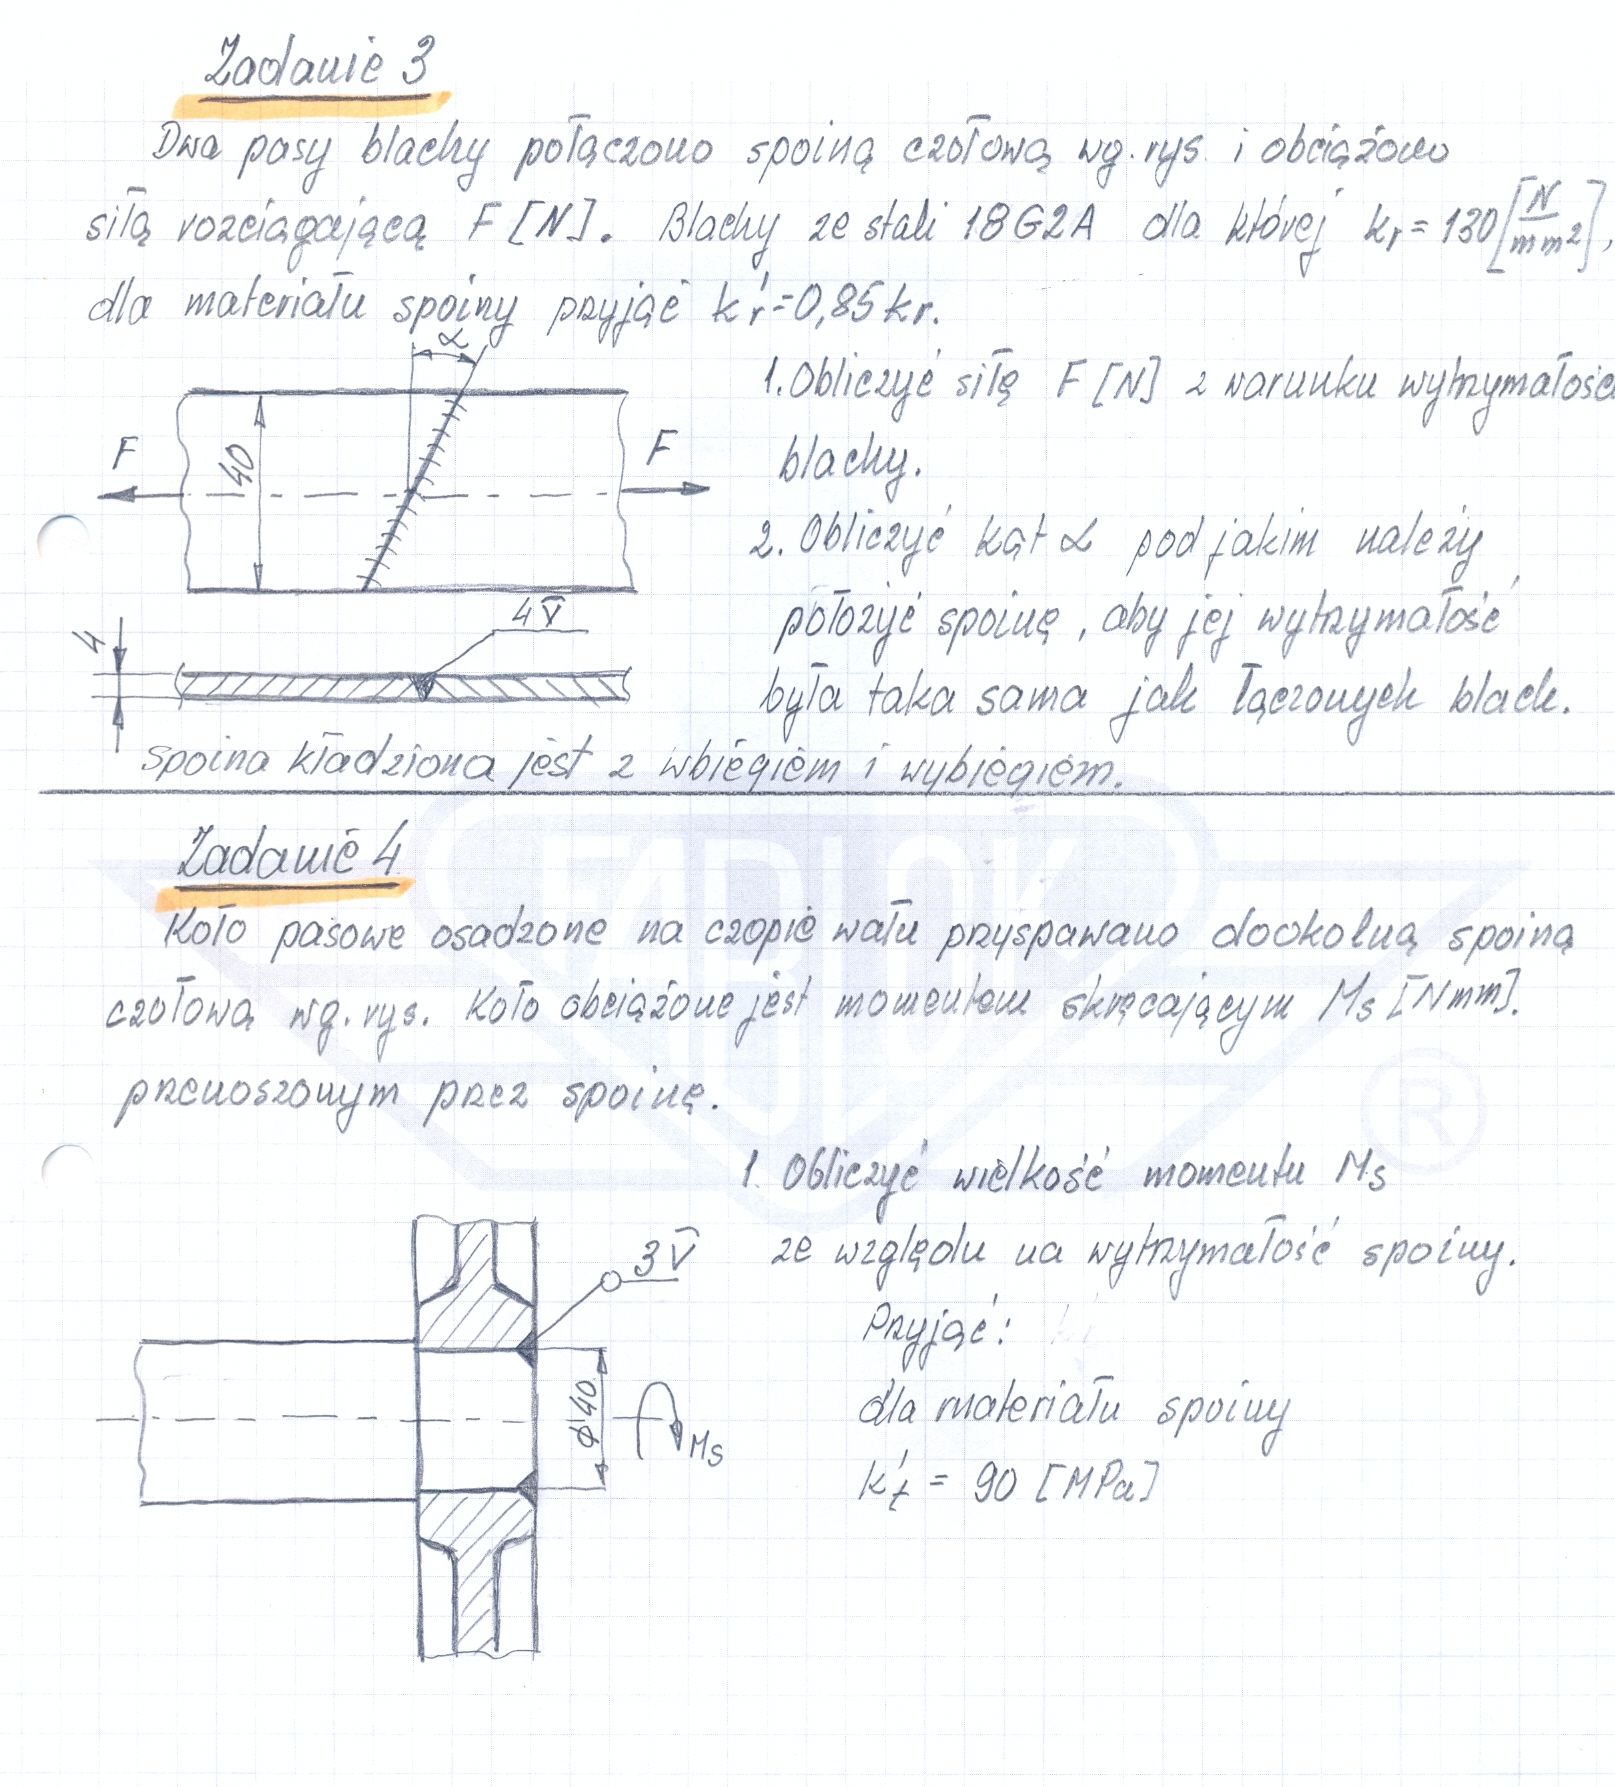 Zadanie 3
Dwa pasy blachy połączono spoiną czołową wg. rys. i obciążono
siłą rozciągającą F [N]. Blachy ze stali 18G2A dla której kr = 130 [N/mm²],
dla materiału spoiny przyjąć k'r = 0,85 kr.
α
1. Obliczyć siłę F [N] z warunku wytrzymałości
blachy.
F
40
F
2. Obliczyć kąt α pod jakim należy
położyć spoinę, aby jej wytrzymałość
była taka sama jak łączonych blach.
4 V
4
spoina kładziona jest z wbiegiem i wybiegiem.
Zadanie 4
Koło pasowe osadzone na czopie wału przyspawano dookolną spoiną
czołową wg. rys. Koło obciążone jest momentem skręcającym Ms [Nmm].
przenoszonym przez spoinę.
1. Obliczyć wielkość momentu Ms
ze względu na wytrzymałość spoiny.
Przyjąć:
dla materiału spoiny
k't = 90 [MPa]
3 V
ϕ40
Ms
FABLOK
®